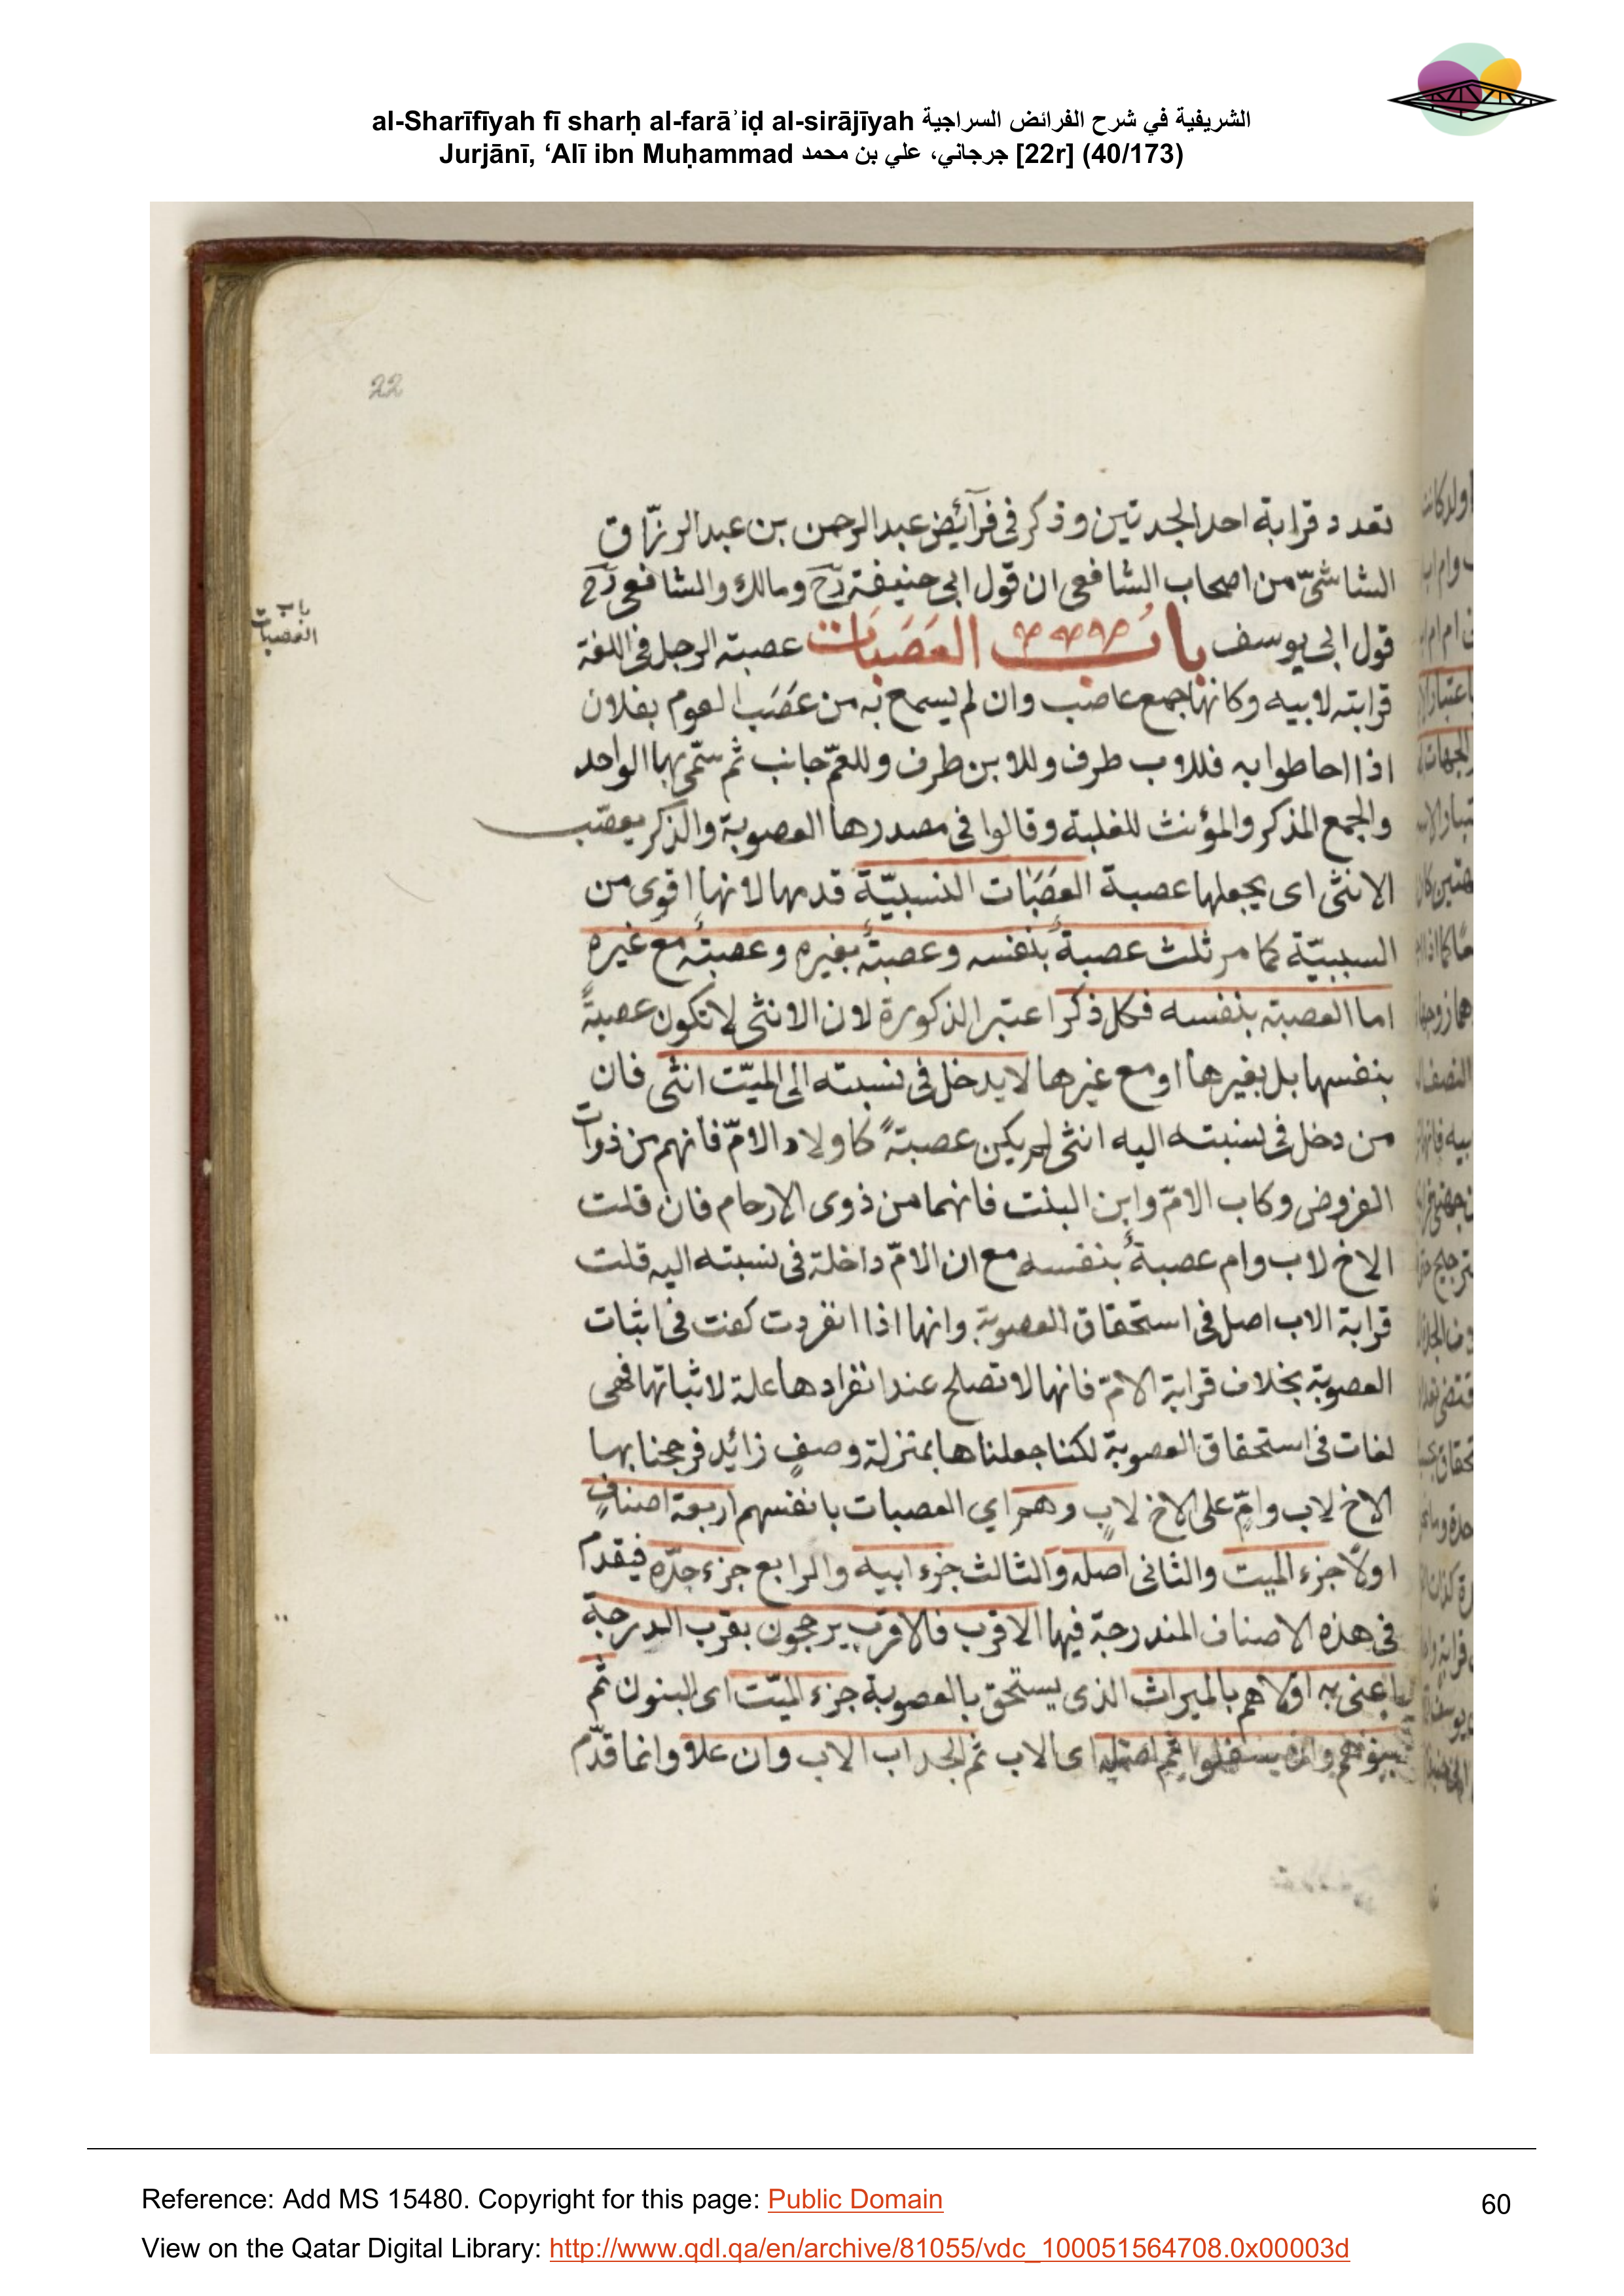 al-Sharīfīyah fī sharḥ al-farāʾiḍ al-sirājīyah الشريفية في شرح الفرائض السراجية
Jurjānī, ‘Alī ibn Muḥammad جرجاني، علي بن محمد [22r] (40/173)
22
تعدد قرابة احد الجدتين وذكر فى فرآئض عبد الرحمن بن عبد الرزّاق
الشاشىّ من اصحاب الشافعى ان قول ابى حنيفة رح ومالك والشافعى رح
قول ابى يوسف باب العَصَبَات عصبته الرجل فى اللغة
باب العصبات
قرابته لابيه وكانها جمع عاصب وان لم يسمع به من عَصَبَ القوم بفلان
اذا احاطوا به فللاب طرف وللابن طرف وللعمّ جانب ثم سمّى بها الواحد
والجمع المذكر والمؤنث للغلبة وقالوا فى مصدرها العصوبة والذكر يعصّب
الانثى اى يجعلها عصبة العَصَبَات النسبيّة قدمها لانها اقوى من
السببيّة كما مر ثلث عصبةٌ بنفسه وعصبةٌ بغيره وعصبةٌ مع غيره
اما العصبة بنفسه فكل ذكر اعتبر الذكورة لان الانثى لا تكون عصبةً
بنفسها بل بغيرها او مع غيرها لا يدخل فى نسبته الى الميّت انثى فان
من دخل فى نسبته اليه انثى لم يكن عصبةً كاولاد الامّ فانهم من ذوات
الفروض وكاب الامّ وابن البنت فانهما من ذوى الارحام فان قلت
الاخ لاب وام عصبةٌ بنفسه مع ان الامّ داخلة فى نسبته اليه قلت
قرابة الاب اصل فى استحقاق العصوبة وانها اذا انفردت كفت فى اثبات
العصوبة بخلاف قرابة الامّ فانها لا تصلح عند انفرادها علة لاثباتها فهى
لغات فى استحقاق العصوبة لكنا جعلناها بمنزلة وصفٍ زائد فرجحنا بها
الاخ لاب وامٍّ على الاخ لابٍ وهم اي العصبات بانفسهم اربعة اصنافٍ
اولًا جزء الميت والثانى اصله والثالث جزء ابيه والرابع جزء جدّه فيقدم
فى هذه الاصناف المندرجة فيها الاقرب فالاقرب يرجحون بقرب الدرجة
اعنى به اولاهم بالميراث الذى يستحق بالعصوبة جزء الميّت اى البنون ثم
بنوهم وان سفلوا ثم اصله اى الاب ثم الجد اب الاب وان علا وانما قدّم
Reference: Add MS 15480. Copyright for this page: Public Domain
60
View on the Qatar Digital Library: http://www.qdl.qa/en/archive/81055/vdc_100051564708.0x00003d